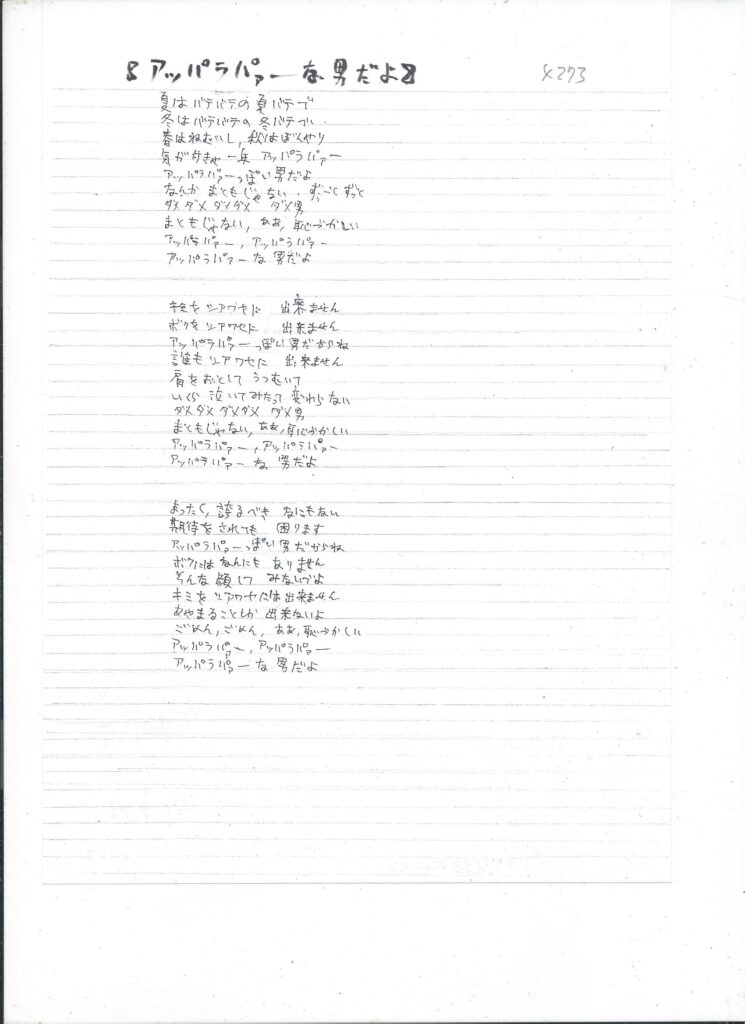 〖アッパラパァーな男だよ〗 4273
夏はバテバテの夏バテで
冬はバテバテの冬バテで
春はねむいし,秋はぼんやり
年がら年中 アッパラパァー
アッパラパァーっぽい男だよ
なんか まともじゃない. ずーっごく ずっと
ダメ ダメ ダメダメ ダメ男
まともじゃない, ああ, 恥づかしい
アッパラパァー, アッパラパァー
アッパラパァー な 男だよ
キミを シアワセに 出来ません
ボクを シアワセに 出来ません
アッパラパァーっぽい 男だからね
誰も シアワセに 出来ません
肩をおとして うつむいて
いくら 泣いてみたって 変わらない
ダメダメ ダメダメ ダメ男
まともじゃない, ああ, 恥づかしい
アッパラパァー, アッパラパァー
アッパラパァー な 男だよ
まったく, 誇るべき なにもない
期待をされても 困ります
アッパラパァーっぽい 男だからね
ボクには なんにも ありません
そんな 顔して みないでよ
キミを シアワセには 出来ません
あやまることしか 出来ないよ
ごめん, ごめん, ああ, 恥づかしい
アッパラパァー, アッパラパァー
アッパラパァー な 男だよ